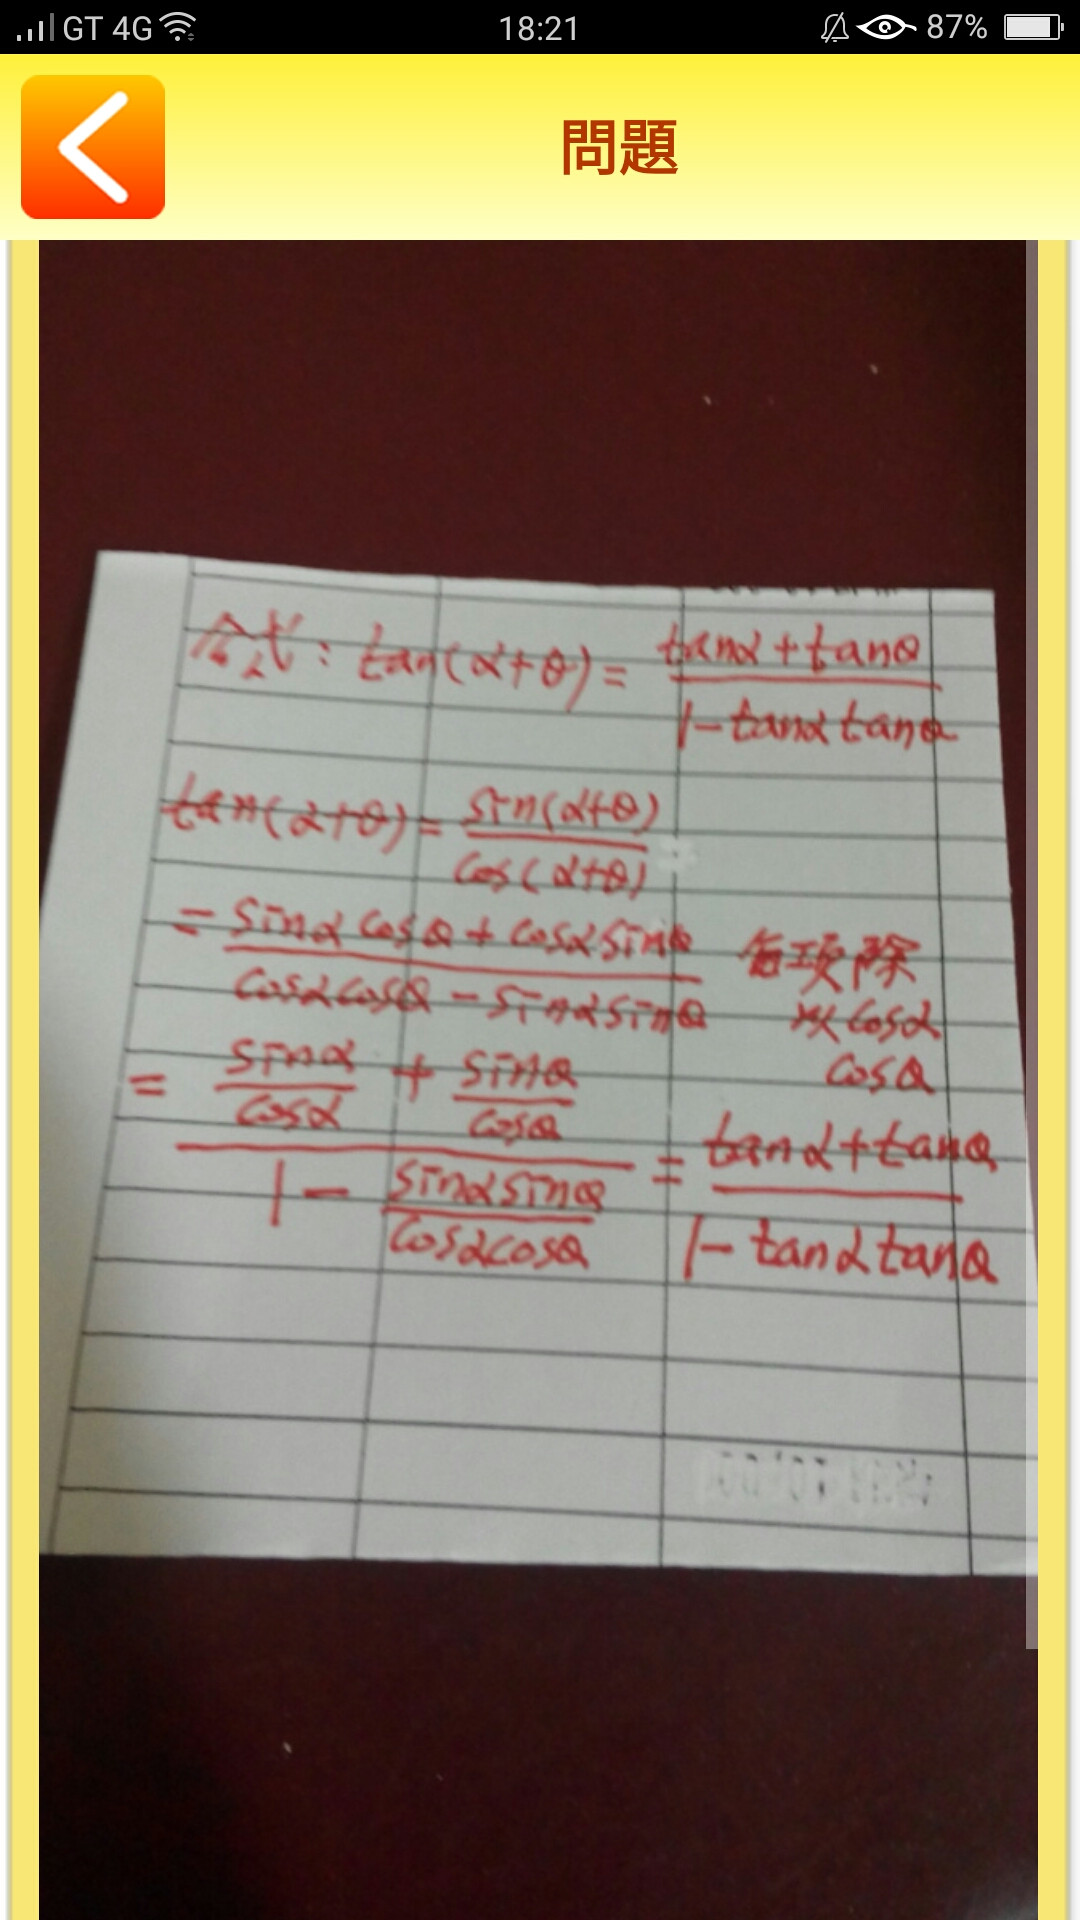 GT 4G 18:21 87%
問題
公式：tan(α+θ) = (tanα+tanθ)/(1-tanα tanθ)
tan(α+θ) = sin(α+θ)/cos(α+θ)
= (sinα cosθ + cosα sinθ)/(cosα cosθ - sinα sinθ) 每项除以 cosα cosθ
= (sinα/cosα + sinθ/cosθ)/(1 - sinα sinθ/cosα cosθ) = (tanα+tanθ)/(1-tanα tanθ)